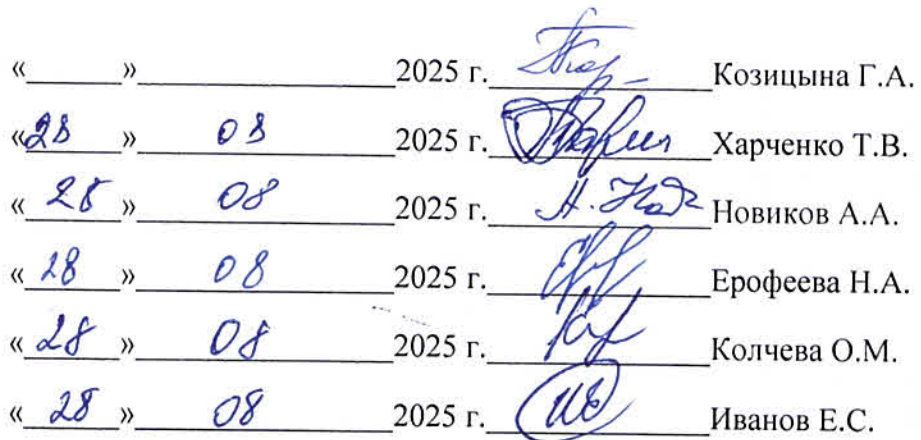 «______»______________2025 г.____________Козицына Г.А.
«28» 08 2025 г. Харченко Т.В.
«28» 08 2025 г. Новиков А.А.
«28» 08 2025 г. Ерофеева Н.А.
«28» 08 2025 г. Колчева О.М.
«28» 08 2025 г. Иванов Е.С.